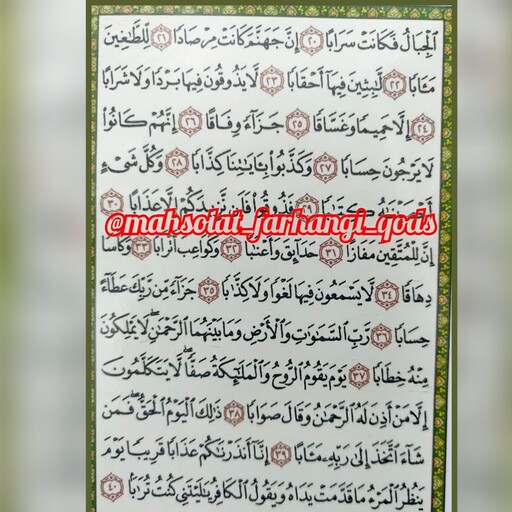 الْجِبَالُ فَكَانَتْ سَرَابًا ٢٠ إِنَّ جَهَنَّمَ كَانَتْ مِرْصَادًا ٢١ لِلطَّاغِينَ
مَـَٔابًا ٢٢ لَابِثِينَ فِيهَا أَحْقَابًا ٢٣ لَا يَذُوقُونَ فِيهَا بَرْدًا وَلَا شَرَابًا
٢٤ إِلَّا حَمِيمًا وَغَسَّاقًا ٢٥ جَزَاءً وِفَاقًا ٢٦ إِنَّهُمْ كَانُوا
لَا يَرْجُونَ حِسَابًا ٢٧ وَكَذَّبُوا بِـَٔايَاتِنَا كِذَّابًا ٢٨ وَكُلَّ شَيْءٍ
٢٩ فَذُوقُوا فَلَن نَّزِيدَكُمْ إِلَّا عَذَابًا ٣٠
@mahsolat_farhangi_qods
إِنَّ لِلْمُتَّقِينَ مَفَازًا ٣١ حَدَائِقَ وَأَعْنَابًا ٣٢ وَكَوَاعِبَ أَتْرَابًا ٣٣ وَكَأْسًا
دِهَاقًا ٣٤ لَا يَسْمَعُونَ فِيهَا لَغْوًا وَلَا كِذَّابًا ٣٥ جَزَاءً مِن رَّبِّكَ عَطَاءً
حِسَابًا ٣٦ رَبِّ السَّمَاوَاتِ وَالْأَرْضِ وَمَا بَيْنَهُمَا الرَّحْمَٰنِ لَا يَمْلِكُونَ
مِنْهُ خِطَابًا ٣٧ يَوْمَ يَقُومُ الرُّوحُ وَالْمَلَائِكَةُ صَفًّا لَا يَتَكَلَّمُونَ
إِلَّا مَنْ أَذِنَ لَهُ الرَّحْمَٰنُ وَقَالَ صَوَابًا ٣٨ ذَٰلِكَ الْيَوْمُ الْحَقُّ فَمَن
شَاءَ اتَّخَذَ إِلَىٰ رَبِّهِ مَـَٔابًا ٣٩ إِنَّا أَنذَرْنَاكُمْ عَذَابًا قَرِيبًا يَوْمَ
يَنظُرُ الْمَرْءُ مَا قَدَّمَتْ يَدَاهُ وَيَقُولُ الْكَافِرُ يَا لَيْتَنِي كُنتُ تُرَابًا ٤٠